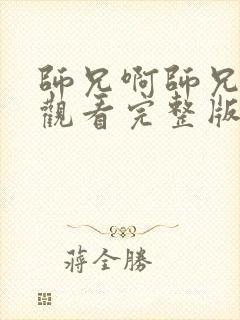 師兄啊師兄
觀看完整版
蔣全勝